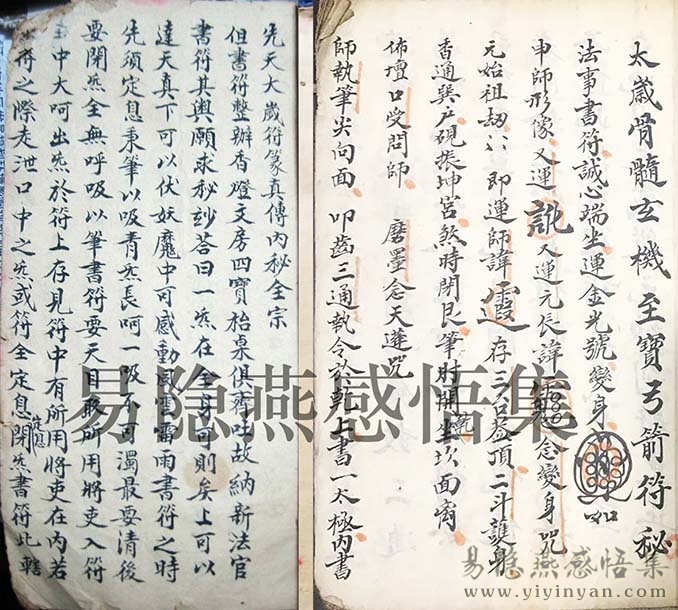 太歲骨髓玄機至寶弓箭符秘
法事書符誠心端坐運金光號變身 如
申師形像又運 又運元長諱 念變身咒
元始祖劫 即運師諱 存三台盖頂二斗護身
香通巽戶硯振坤宮煞時閉艮筆時開乾坐坎面离
佈壇口受問師 磨墨念天蓬咒
師執筆尖向面 叩齒三通執令於乾上書一太極內書
先天大歲符篆真傳內秘全宗
但書符整辦香燈文房四寶枱桌俱齊吐故納新法官
書符其輿願求秘玅荅曰一炁在全身可則矣上可以
達天真下可以伏妖魔中可感動風雲雷雨書符之時
先須定息秉筆以吸青炁長呵一吸不可濁最要清後
要閉炁全無呼吸以筆書符要天目取所用將吏入符
中大呵出炁於符上存見符中有所用將吏在內若
符之際走泄口中之炁或符全定息閉炁書符此轄
定息
易隐燕感悟集
易隐燕感悟集
www.yiyinyan.com